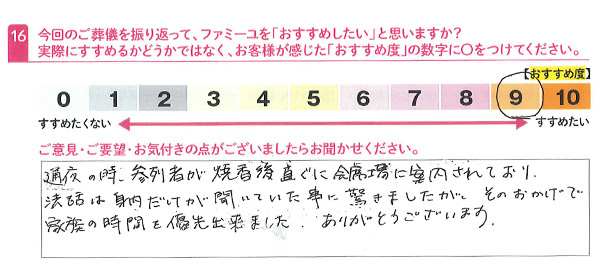 16 今回のご葬儀を振り返って、ファミーユを「おすすめしたい」と思いますか?
実際にすすめるかどうかではなく、お客様が感じた「おすすめ度」の数字に○をつけてください。
【おすすめ度】
0 1 2 3 4 5 6 7 8 9 10
すすめたくない すすめたい
ご意見・ご要望・お気付きの点がございましたらお聞かせください。
通夜の時、参列者が焼香後直ぐに会席場に案内されており、
法話は身内だけが聞いていた事に驚きましたが、そのおかげで
家族の時間を優先出来ました。ありがとうございます。